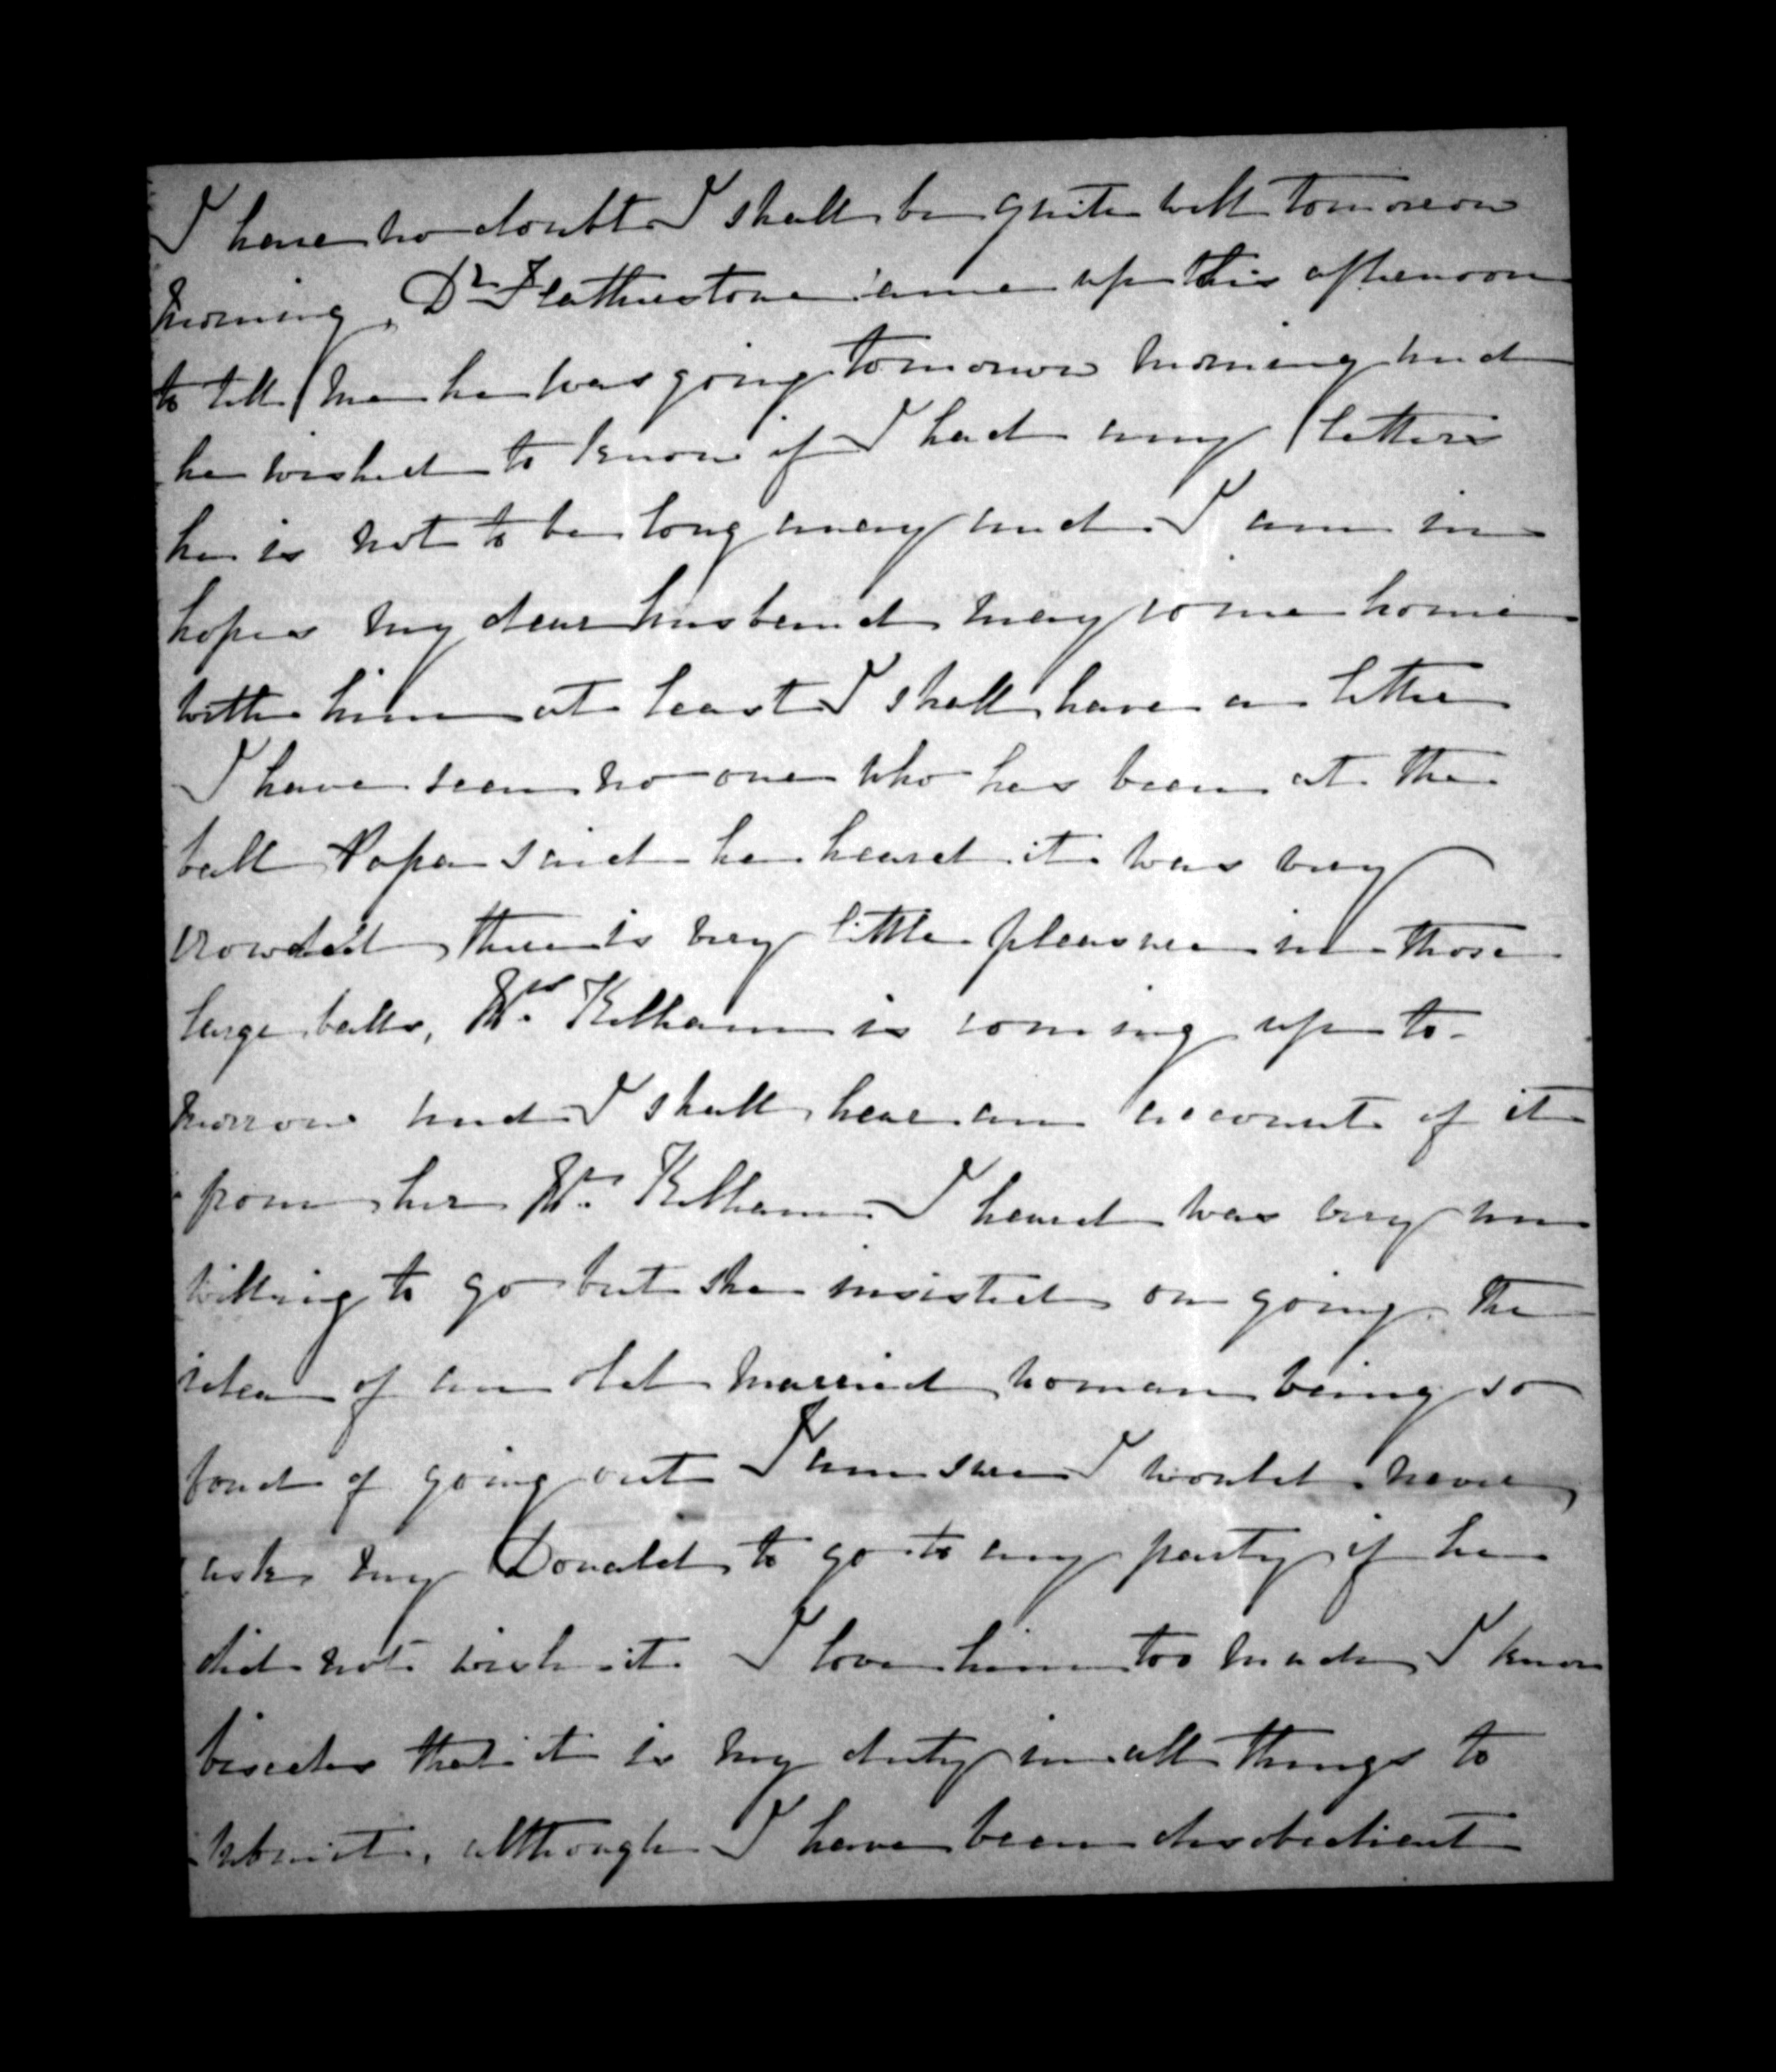 I have no doubt I shall be quite well tomorrow
morning, Dr Featherstone came up this afternoon
to tell me he was going tomorrow morning and
he wished to know if I had any letters
he is not to be long away and I am in
hopes my dear husband may come home
with him at least I shall have a letter
I have seen no one who has been at the
ball Papa said he heard it was very
crowded there is very little pleasure in those
large balls, Mrs Kelham is coming up to-
morrow and I shall hear an account of it
from her Mr. Kelham I heard was very un
willing to go but she insisted on going. The
idea of an old married woman being so
fond of going out I am sure I would never
ask my Donald to go to any party if he
did not wish it I love him too much I know
besides that it is my duty in all things to
submit, although I have been disobedient